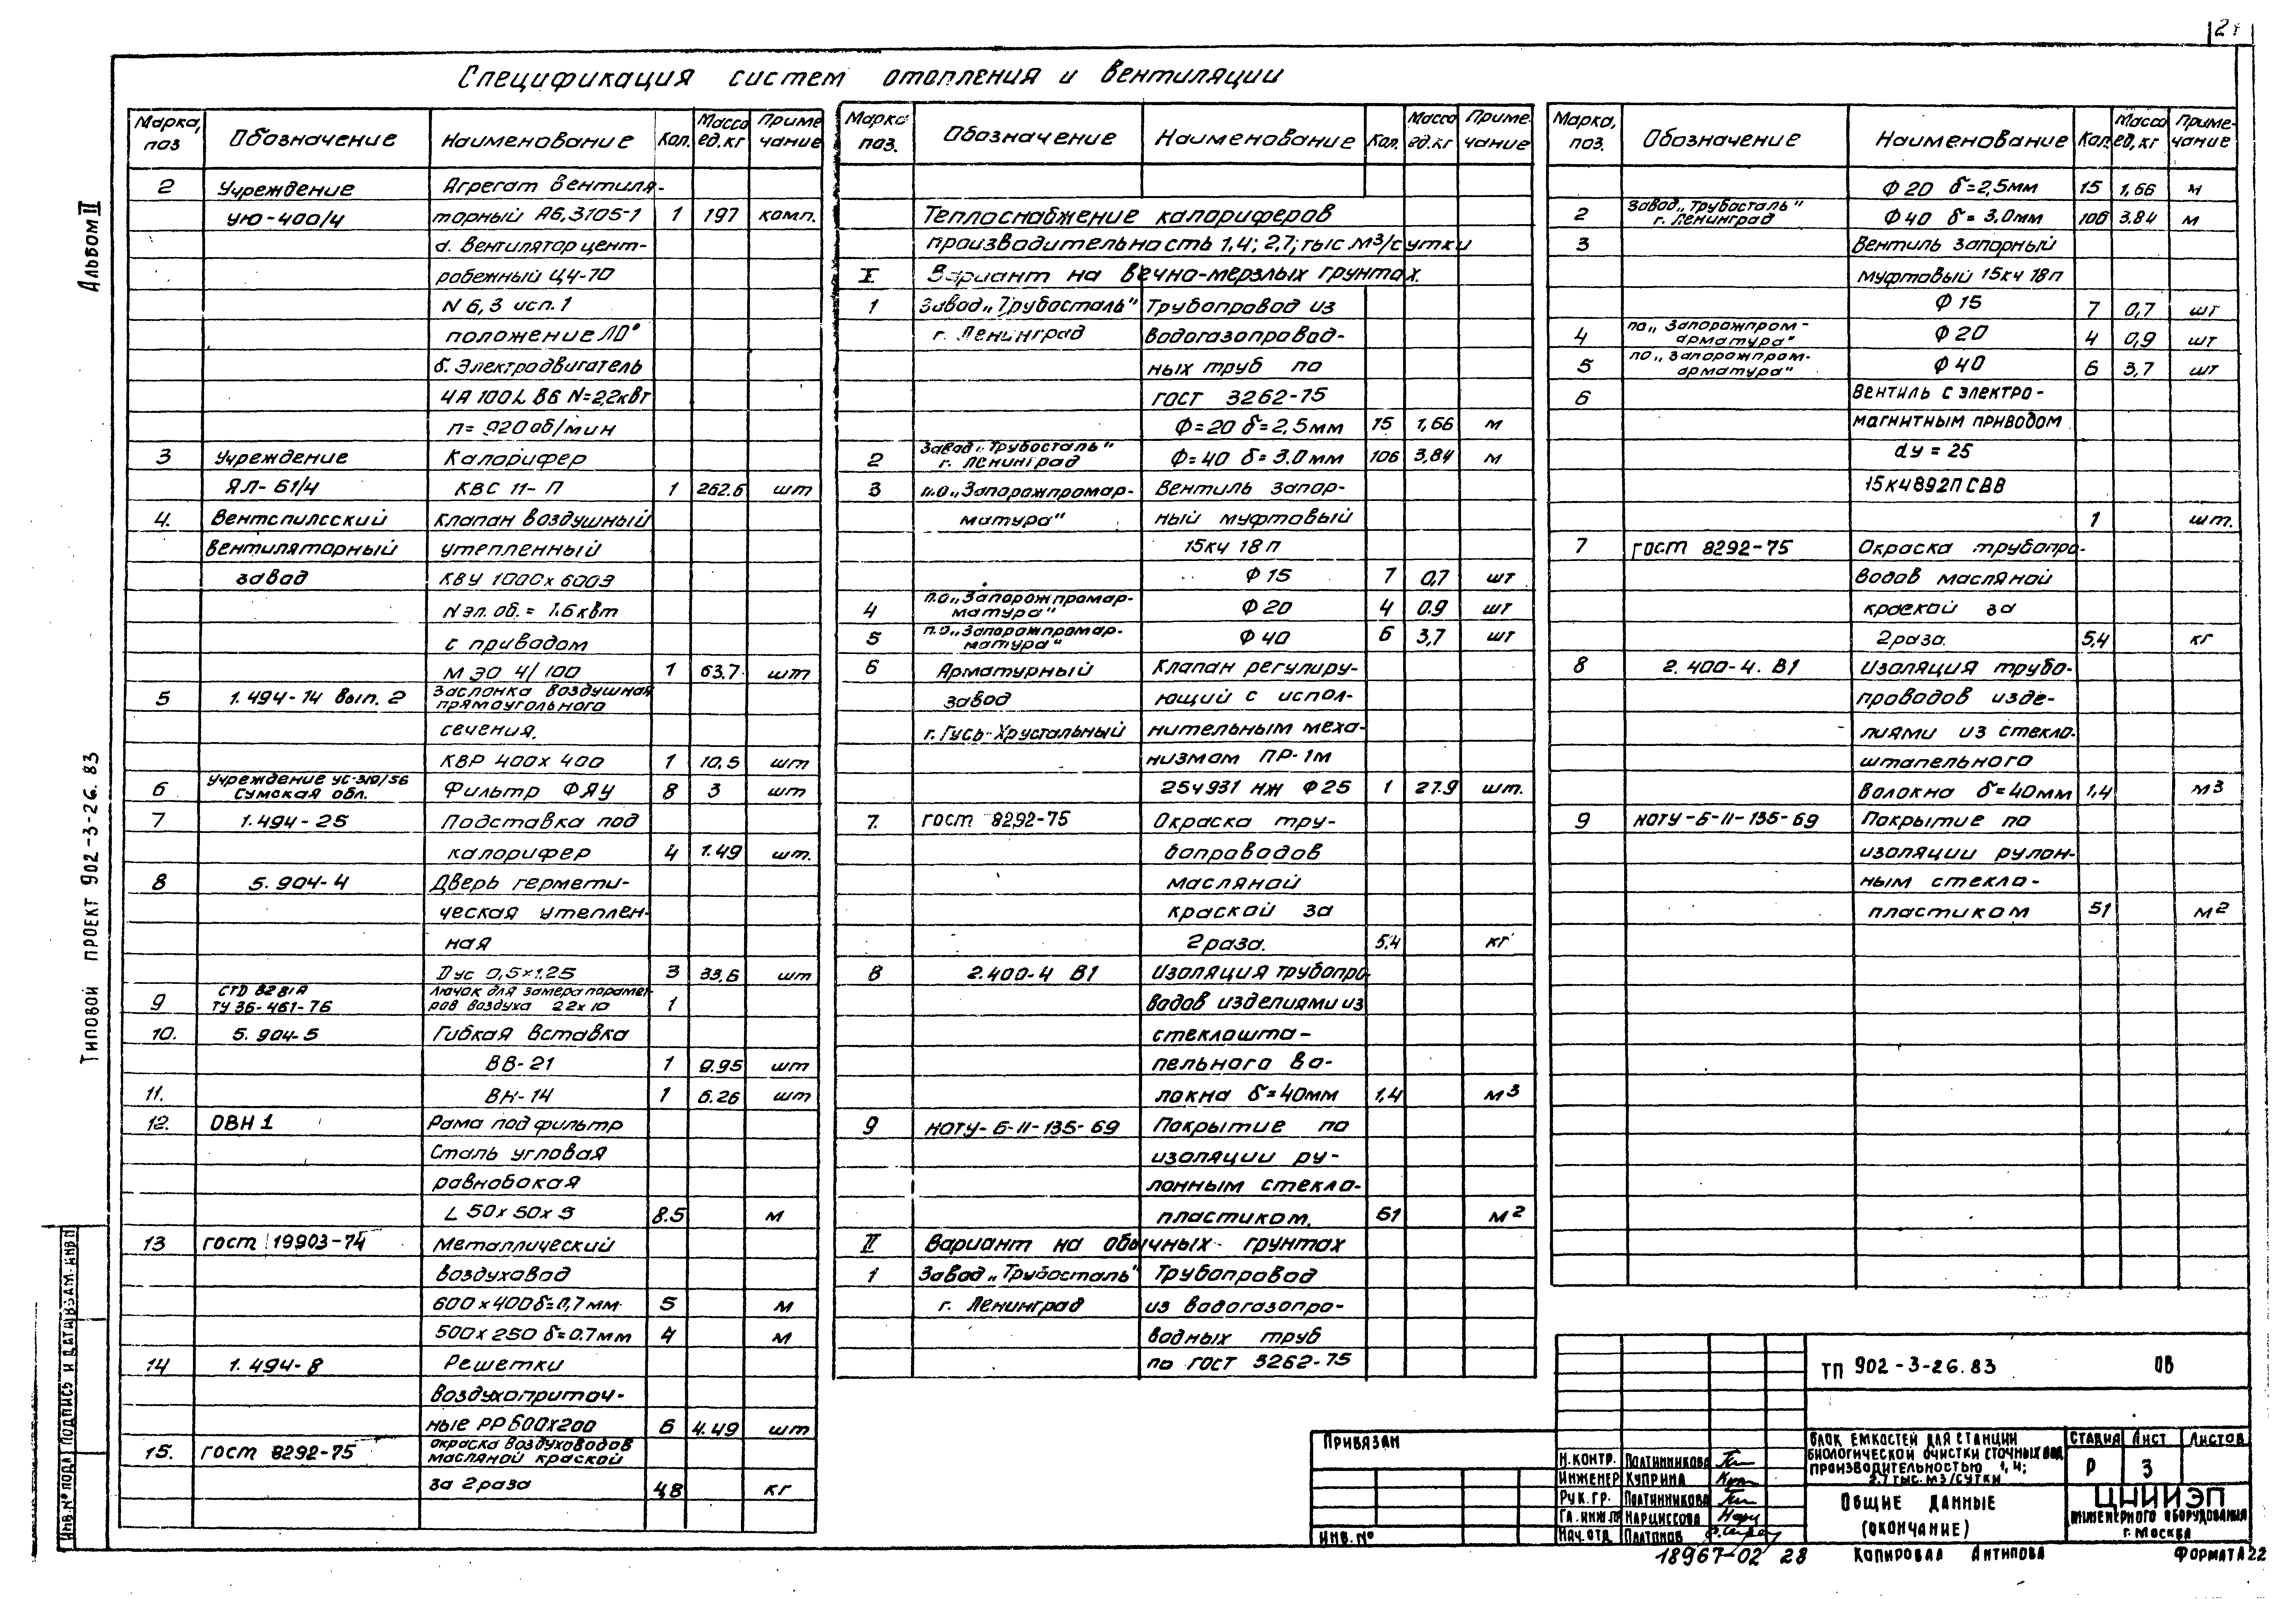 Спецификация систем отопления и вентиляции
Альбом II
Типовой проект 902-3-26.83
Марка, поз Обозначение Наименование Кол. Масса ед.кг Примечание
2 Учреждение Агрегат вентиля-
УЮ-400/4 торный А6,3105-1 1 197 комп.
а. Вентилятор цент-
робежный Ц4-70
N 6,3 исп.1
положение Л0°
б. Электродвигатель
4А100L В6 N=2,2квт
n=920об/мин
3 Учреждение Калорифер
ЯЛ-61/4 КВС 11-П 1 262.6 шт
4. Вентспилсский Клапан воздушный
вентиляторный утепленный
завод КВУ 1000х600Э
Nэл.об.=1.6квт
с приводом
МЭО 4/100 1 63.7 шт
5 1.494-14 вып.2 Заслонка воздушная
прямоугольного
сечения.
КВР 400х400 1 10,5 шт
6 Учреждение УС-310/56 Сумская обл. Фильтр ФЯУ 8 3 шт
7 1.494-25 Подставка под
калорифер 4 1.49 шт.
8 5.904-4 Дверь гермети-
ческая утеплен-
ная
Dус 0,5х1.25 3 33,6 шт
9 СТД 8281А ТУ 36-461-76 Лючок для замера парамет-
ров воздуха 22х10 1
10. 5.904-5 Гибкая вставка
ВВ-21 1 9.95 шт
11. ВН-14 1 6.26 шт
12. ОВН1 Рама под фильтр
Сталь угловая
равнобокая
L 50х50х5 8.5 м
13 ГОСТ 19903-74 Металлический
воздуховод
600х400 δ=0,7мм 5 м
500х250 δ=0.7мм 4 м
14 1.494-8 Решетки
воздухоприточ-
ные РР600х200 6 4.49 шт
15. ГОСТ 8292-75 Окраска воздуховодов
масляной краской
за 2 раза 4,8 кг
Марка поз. Обозначение Наименование Кол. Масса ед.кг Примечание
Теплоснабжение калориферов
производительность 1,4; 2,7; тыс м3/сутки
I. Вариант на вечно-мерзлых грунтах.
1 Завод „Трубосталь" Трубопровод из
г. Ленинград водогазопровод-
ных труб по
ГОСТ 3262-75
Ф=20 δ=2,5мм 15 1,66 м
2 Завод „Трубосталь" г. Ленинград Ф=40 δ=3.0мм 106 3,84 м
3 п.о „Запорожпромар- Вентиль запор-
матура" ный муфтовый
15кч 18п
Ф15 7 0,7 шт
4 п.о „Запорожпромар-матура" Ф20 4 0.9 шт
5 п.о „Запорожпромар-матура" Ф40 6 3,7 шт
6 Арматурный Клапан регулиру-
завод ющий с испол-
г. Гусь-Хрустальный нительным меха-
низмом ПР-1м
25ч931 нж Ф25 1 27.9 шт.
7. ГОСТ 8292-75 Окраска тру-
бопроводов
масляной
краской за
2 раза. 5.4 кг
8 2.400-4 В1 Изоляция трубопро
водов изделиями из
стеклошта-
пельного во-
локна δ=40мм 1,4 м3
9 МОТУ-6-11-135-69 Покрытие по
изоляции ру-
лонным стекло-
пластиком. 61 м2
II Вариант на обычных грунтах
1 Завод „Трубосталь" Трубопровод
г. Ленинград из водогазопро-
водных труб
по ГОСТ 3262-75
Марка, поз. Обозначение Наименование Кол. Масса ед.кг Примечание
Ф20 δ=2,5мм 15 1,66 м
2 Завод „Трубосталь" г. Ленинград Ф40 δ=3.0мм 106 3.84 м
3 Вентиль запорный
муфтовый 15кч 18п
Ф15 7 0,7 шт
4 по „Запорожпром-арматура" Ф20 4 0,9 шт
5 по „Запорожпром-арматура" Ф40 6 3,7 шт
6 Вентиль с электро-
магнитным приводом
dу=25
15кч892п СВВ
1 шт.
7 ГОСТ 8292-75 Окраска трубопро-
водов масляной
краской за
2 раза. 5,4 кг
8 2.400-4.В1 Изоляция трубо-
проводов изде-
лиями из стекло-
штапельного
волокна δ=40мм 1,4 м3
9 МОТУ-6-11-135-69 Покрытие по
изоляции рулон-
ным стекло-
пластиком 51 м2
Инв.№ подл Подпись и дата Взам.инв.№
Привязан
Инв.№
ТП 902-3-26.83 ОВ
Н.контр. Плотинникова
Инженер Куприна
Рук.гр. Плотинникова
Гл.инж.пр Нарциссова
Нач.отд Платонов
Блок емкостей для станции
биологической очистки сточных вод
производительностью 1,4;
2.7 тыс. м3/сутки
Стадия Лист Листов
Р 3
Общие данные
(окончание)
ЦНИИЭП
инженерного оборудования
г. Москва
18967-02 28
Копировал Антипова
Формат А22